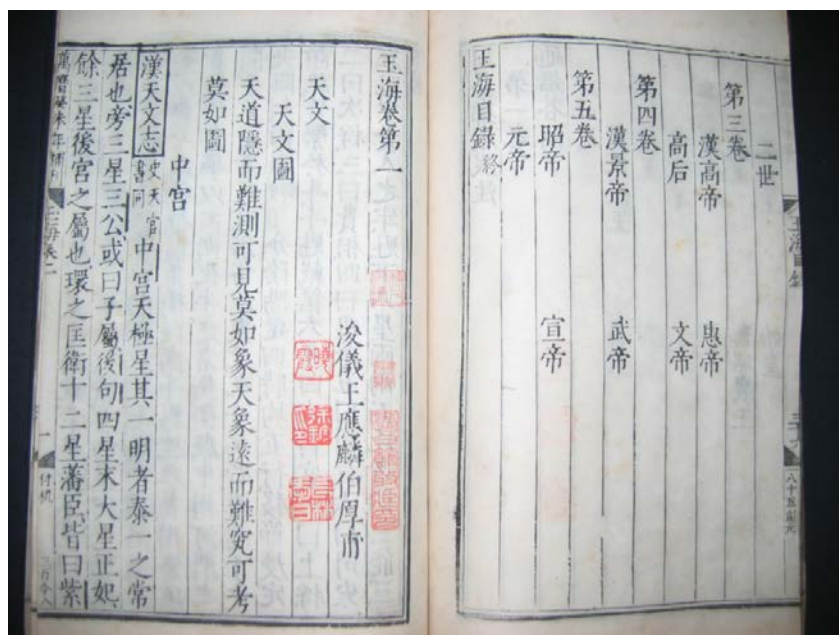 二世
第三卷
漢高帝 惠帝
高后 文帝
第四卷
漢景帝 武帝
第五卷
昭帝 宣帝
元帝
玉海目錄終
玉海目錄
玉海卷第一
浚儀王應麟伯厚甫
天文
天文圖
天道隱而難測可見莫如象天象遠而難究可考
莫如圖
中宮
漢天文志史天官書同中宮天極星其一明者泰一之常
居也旁三星三公或曰子屬後句四星末大星正妃
餘三星後宮之屬也環之匡衛十二星藩臣皆曰紫